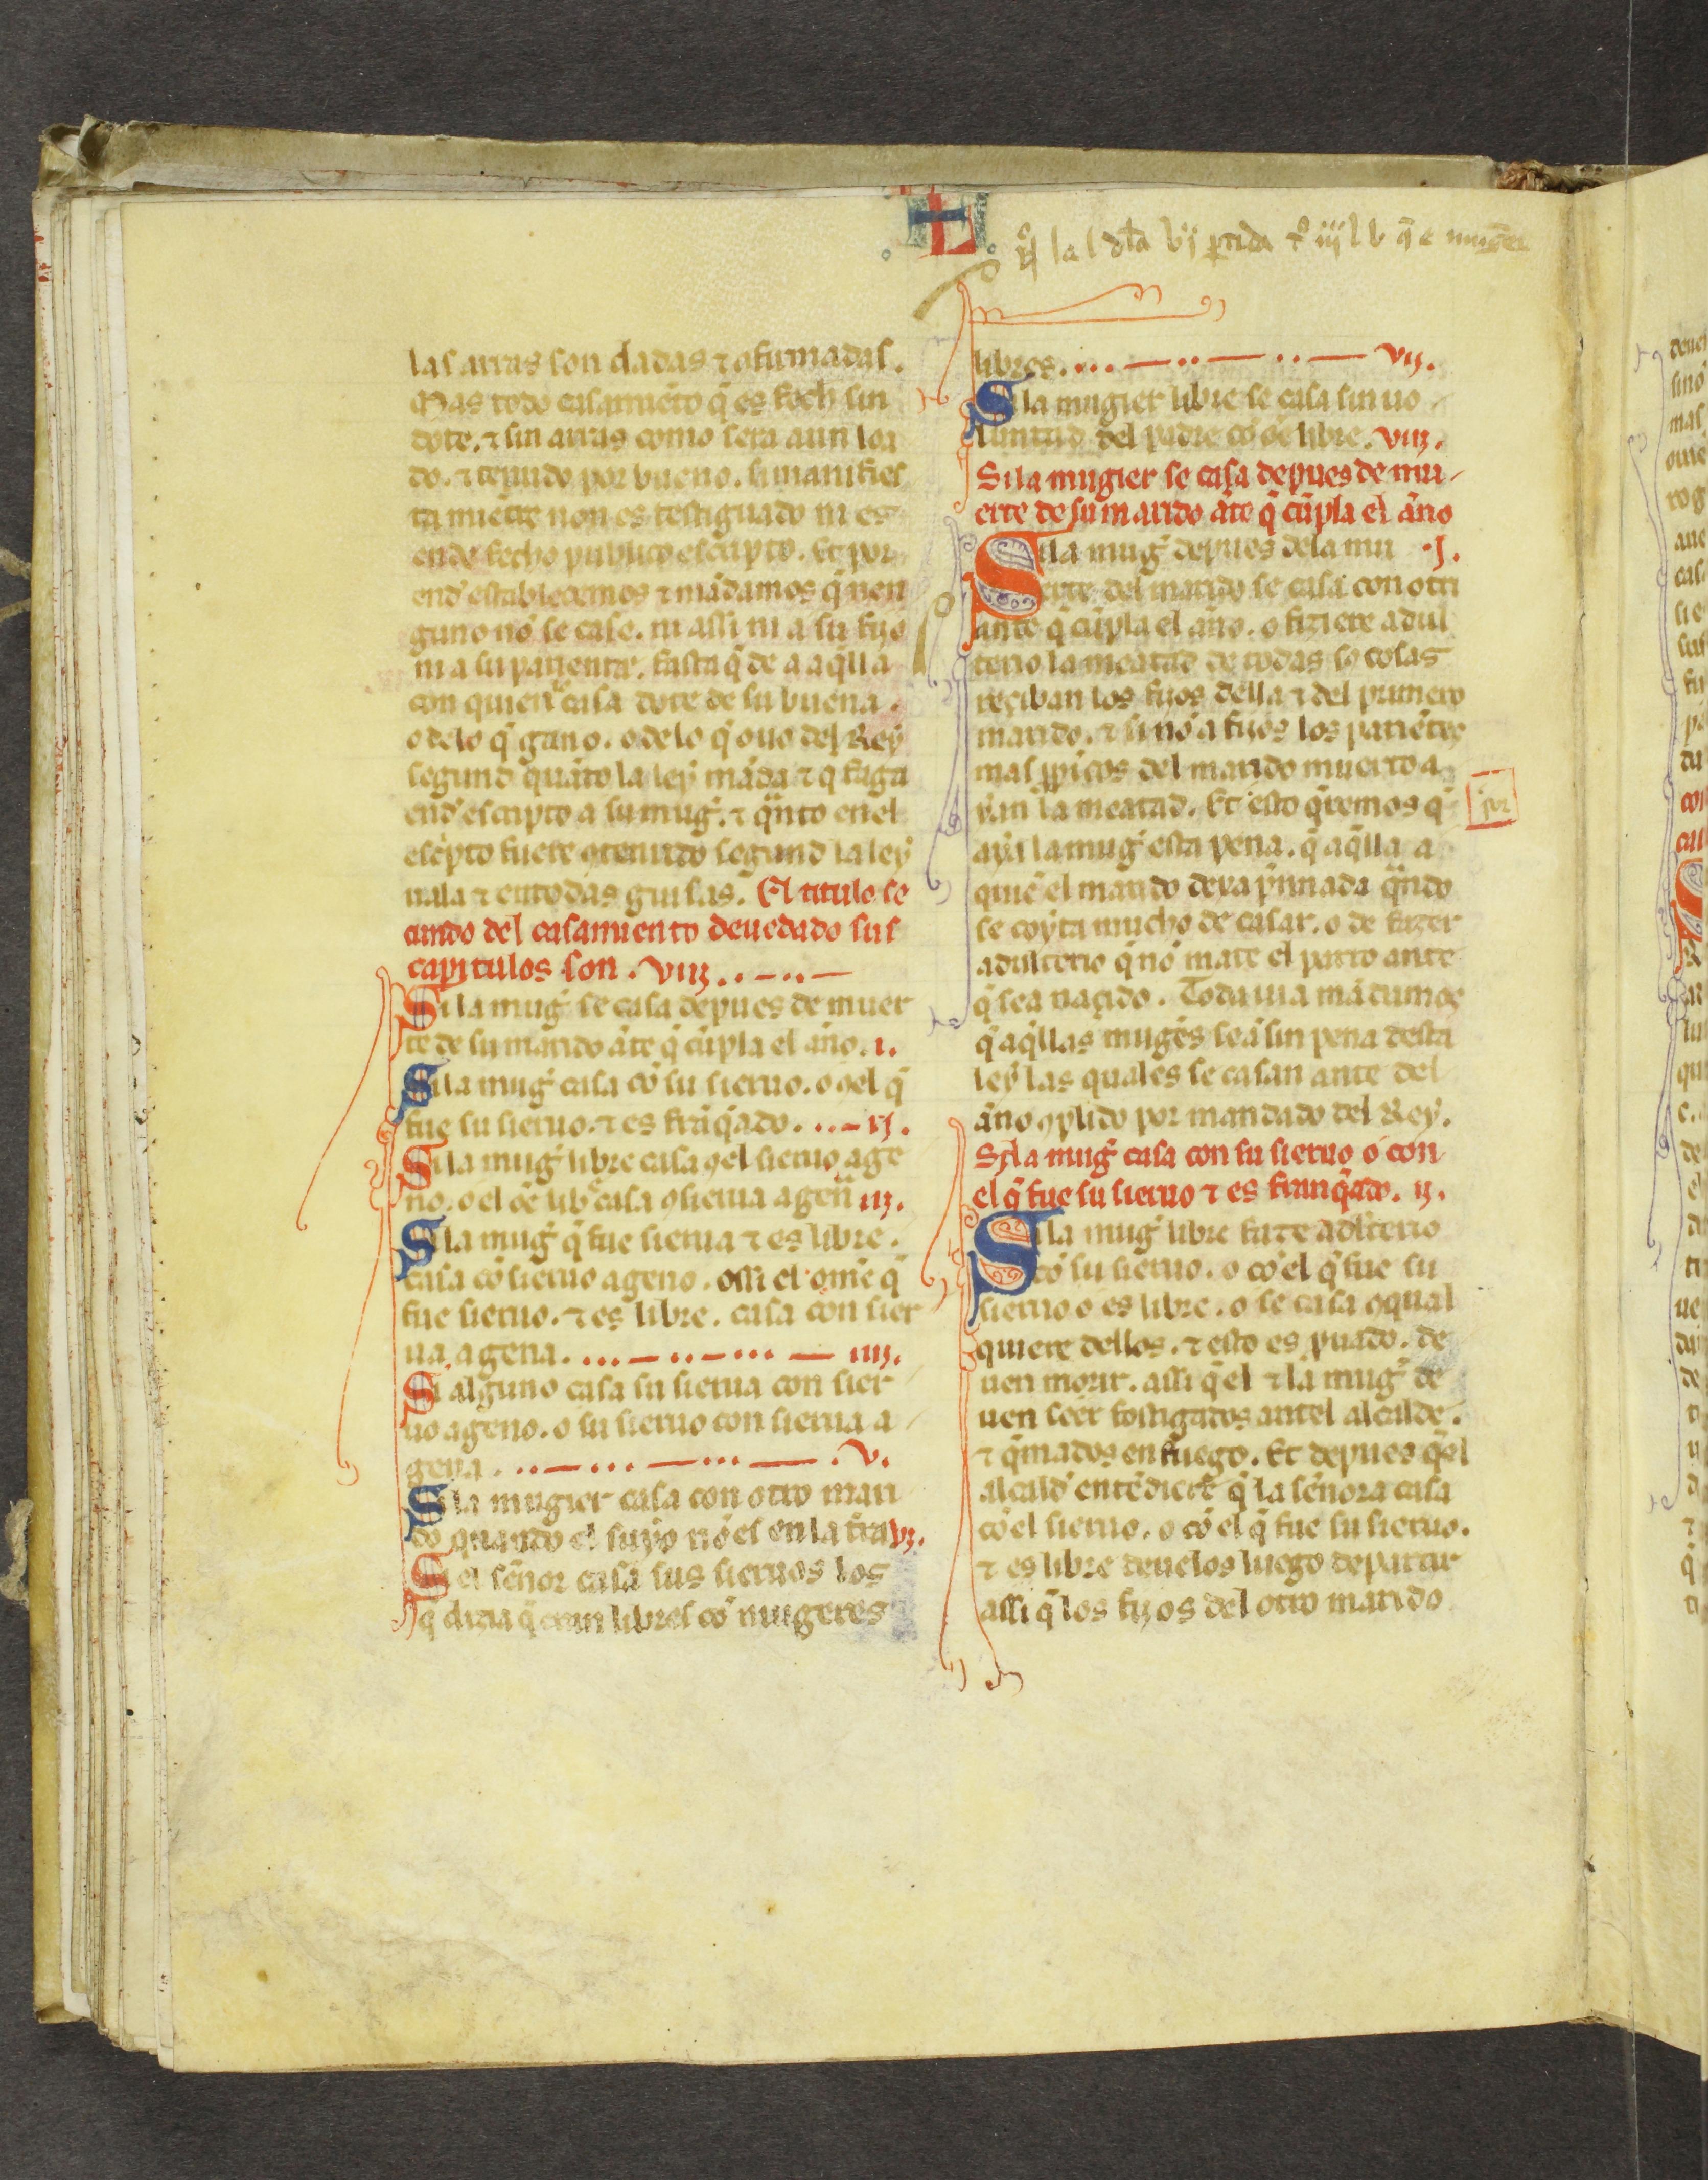 L
la l vij partida iiij l v q̃ e muger
las arras son dadas ⁊ afirmadas.
Mas todo casamiẽto q̃ es fech sin
dote. ⁊ sin arras como sera aun loa
do. ⁊ tenudo por bueno. si manifies
ta miẽtre non es testiguado ni es
ende fecho publico escripto. Et por
end' establecemos ⁊ mãdamos q̃ nen
guno nõ se case. ni assi ni a su fijo
ni a su pariente. fasta q̃ de a aq̃lla
con quien casa dote de su buena.
o delo q̃ gano. o delo q̃ ouo del Rey
segund quãto la ley mãda ⁊ q̃ faga
end' escripto a su mug̃. ⁊ q̃nto enel
esc̃pto fuere ꝯtenudo segund la ley
uala ⁊ en todas guisas. El titulo se
cundo del casamiento deuedado sus
capitulos son. viij..–..–
Si la mug̃ se casa depues de muer
te de su marido ãte q̃ cũpla el año. i.
Si la mug̃ casa cõ su sieruo. o ꝯel q̃
fue su sieruo. ⁊ es frãq̃ado. ..– ij.
Si la mug̃ libre casa ꝯel sieruo age
no. o el oẽ libe casa ꝯ sierua ageñ iij.
Si la mug̃ q̃ fue sierua ⁊ es libre.
casa cõ sieruo ageno. ossi el omẽ q̃
fue sieruo. ⁊ es libre. casa con sier
ua agena. ...–..–...– iiij.
Si alguno casa su sierua con sier
uo ageno. o su sieruo con sierua a
gena. ..–...–...–. v.
Si la mugier casa con otro mari
do quando el suyo nõ es en la tr̃a vj.
Si el señor casa sus sieruos los
q̃ dizia q̃ eran libres cõ mugeres
libres. ...–..–..– vij.
Si la mugier libre se casa sin uo
luntad del padre cõ oẽ libre. viij.
Si la mugier se casa depues de mu-
erte de su marido ãte q̃ cũpla el año
Si la mug̃ depues dela mu ·j.
erte del marido se casa con otri
ante q̃ cũpla el año. o fiziere adul
terio la meatad de todas so cosas
reçiban los fijos della ⁊ del primero
marido. ⁊ si nõ a fijos los pariẽtes
mas p̃p̃icos del marido muerto a
yan la meatad. Et esto q̃remos q̃
aya la mug̃ esta pena. q̃ aq̃lla a
quiẽ el marido dexa p̃nnada q̃ndo
se coyta mucho de casar. o de fazer
adulterio q̃ nõ mate el parto ante
q̃ sea naçido. Toda uia mãdamos
q̃ aq̃llas mugẽs seã sin pena desta
ley las quales se casan ante del
año ꝯplido por mandado del Rey.
Si la mug̃ casa con su sieruo o con
el q̃ fue su sieruo ⁊ es franq̃ado. ij.
Si la mug̃ libre faze adl̃terio
cõ su sieruo. o cõ el q̃ fue su
sieruo o es libre. o se casa ꝯ qual
quiere dellos. ⁊ esto es p̃uado. de
uen morir. assi q̃ el ⁊ la mug̃ de
uen seer fostigados antel alcalde.
⁊ q̃mados en fuego. Et depues q̃el
alcald' entẽdiere q̃ la señora casa
cõ el sieruo. o cõ el q̃ fue su sieruo.
⁊ es libre deuelos luego departir
assi q̃ los fijos del otro marido